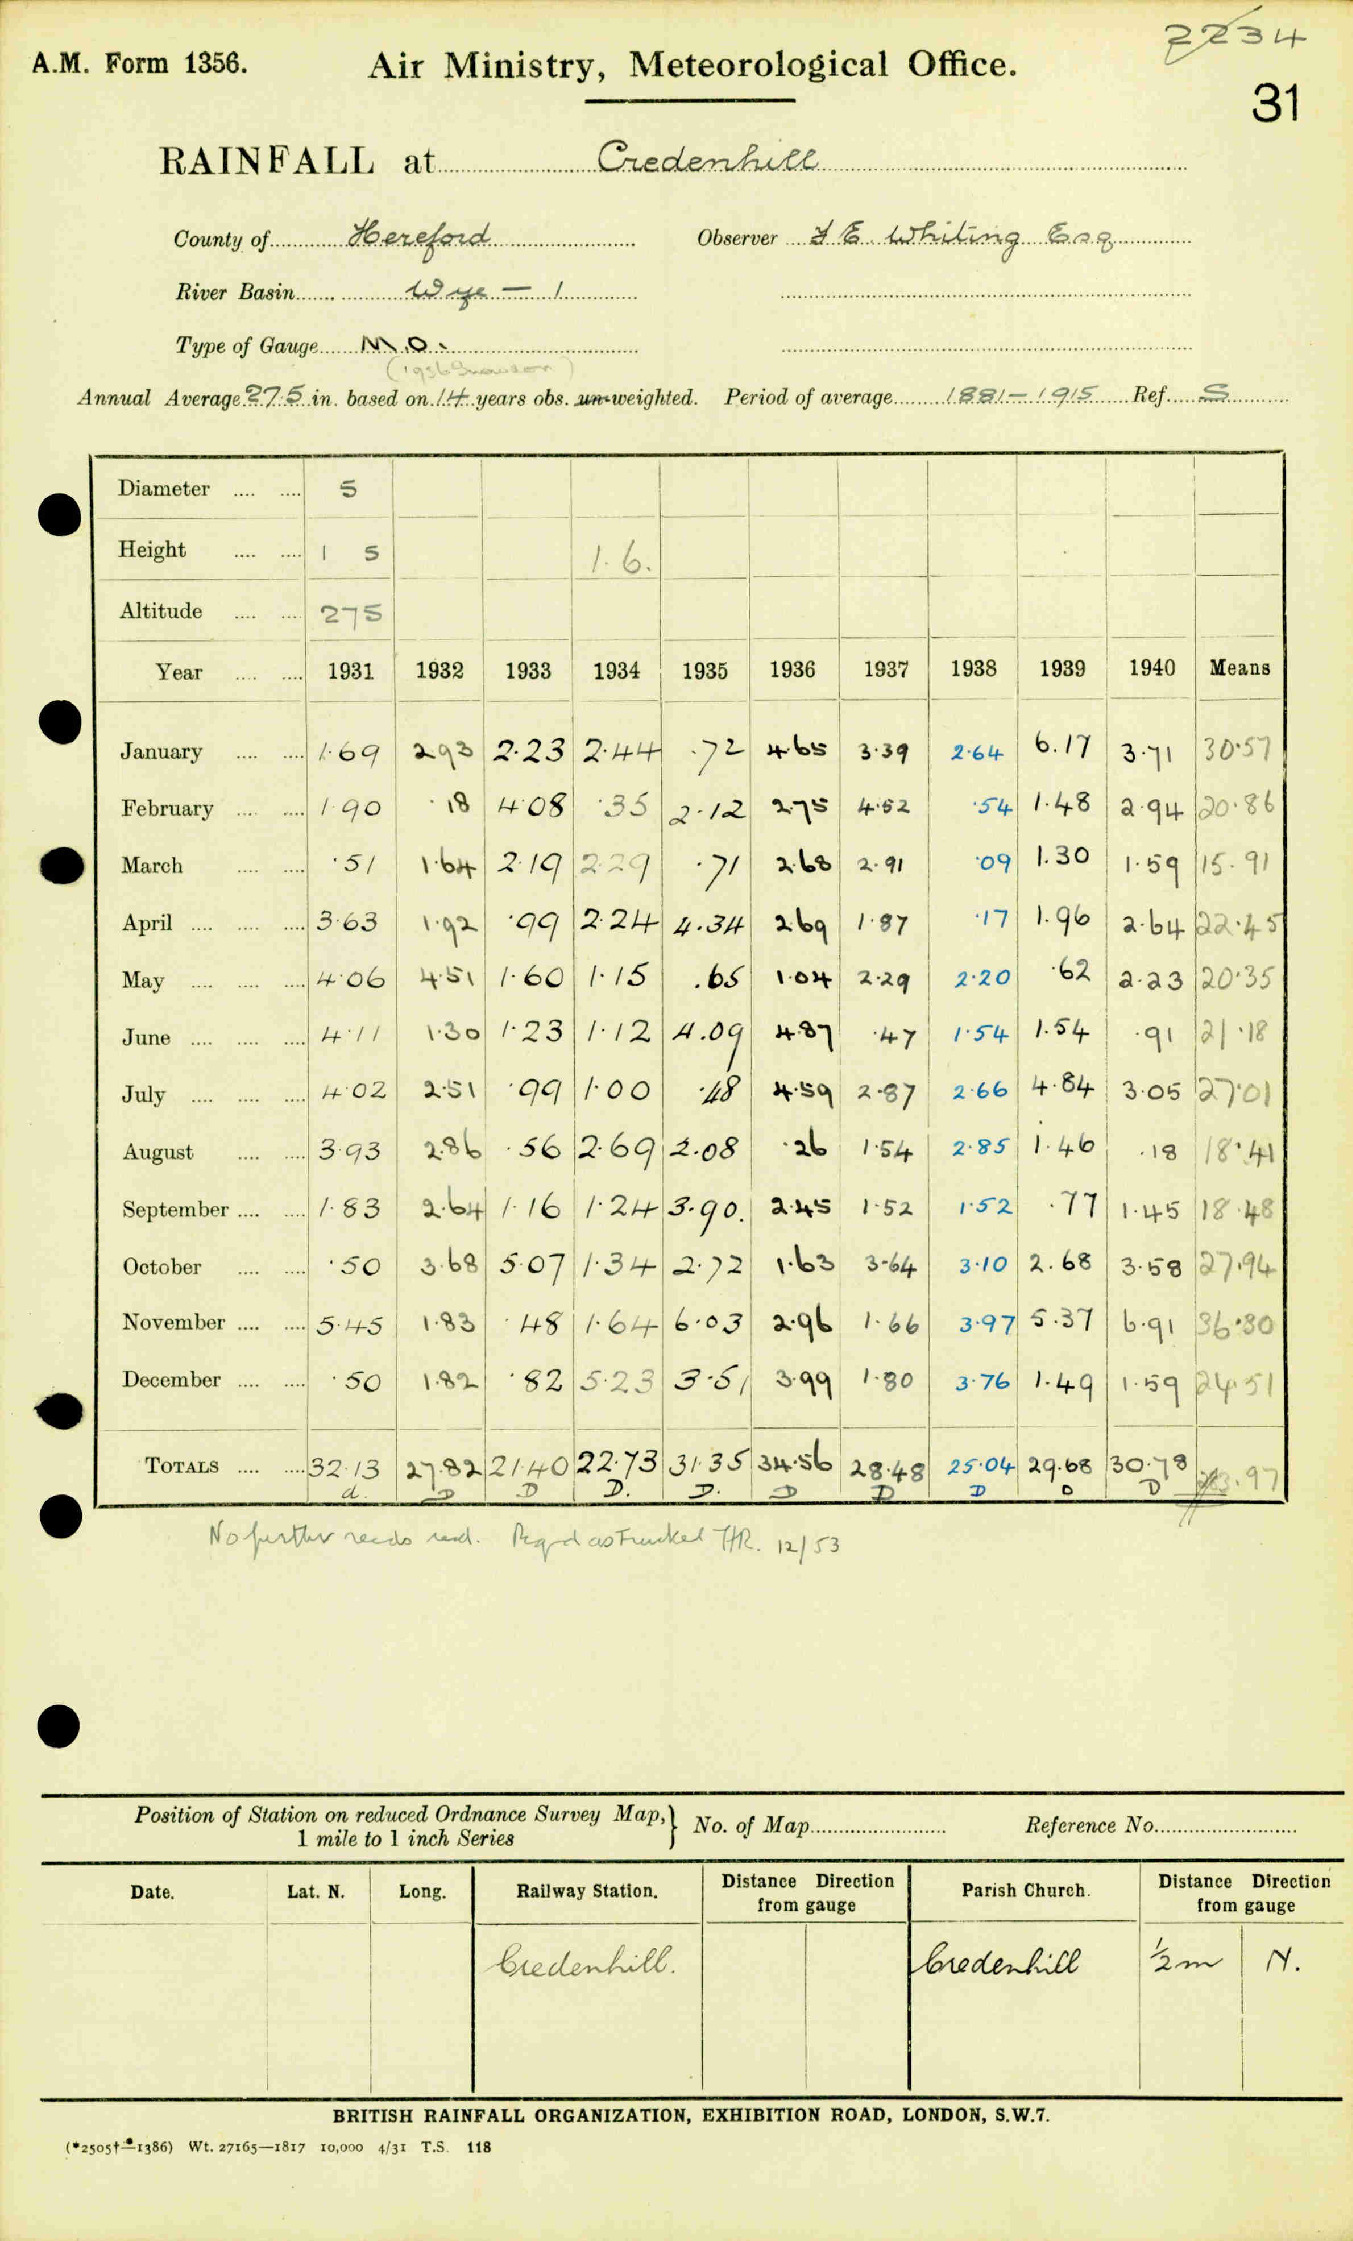 2234
A.M. Form 1356. Air Ministry, Meteorological Office.
31
RAINFALL at Credenhill
County of Hereford Observer F E Whiting Esq
River Basin Wye — 1
Type of Gauge M.O.
(1936 Snowdon)
Annual Average 27.5 in. based on 14 years obs. un-weighted. Period of average 1881–1915 Ref. S
Diameter .... .... 5
Height .... .... 1 5 1.6.
Altitude .... .... 275
Year .... .... 1931 1932 1933 1934 1935 1936 1937 1938 1939 1940 Means
January .... .... 1.69 2.93 2.23 2.44 .72 4.65 3.39 2.64 6.17 3.71 30.57
February .... .... 1.90 .18 4.08 .35 2.12 2.75 4.52 .54 1.48 2.94 20.86
March .... .... .51 1.64 2.19 2.29 .71 2.68 2.91 .09 1.30 1.59 15.91
April .... .... .... 3.63 1.92 .99 2.24 4.34 2.69 1.87 .17 1.96 2.64 22.45
May .... .... .... 4.06 4.51 1.60 1.15 .65 1.04 2.29 2.20 .62 2.23 20.35
June .... .... .... 4.11 1.30 1.23 1.12 4.09 4.87 .47 1.54 1.54 .91 21.18
July .... .... .... 4.02 2.51 .99 1.00 .48 4.59 2.87 2.66 4.84 3.05 27.01
August .... .... 3.93 2.86 .56 2.69 2.08 .26 1.54 2.85 1.46 .18 18.41
September .... .... 1.83 2.64 1.16 1.24 3.90. 2.45 1.52 1.52 .77 1.45 18.48
October .... .... .50 3.68 5.07 1.34 2.72 1.63 3.64 3.10 2.68 3.58 27.94
November .... .... 5.45 1.83 .48 1.64 6.03 2.96 1.66 3.97 5.37 6.91 36.30
December .... .... .50 1.82 .82 5.23 3.51 3.99 1.80 3.76 1.49 1.59 24.51
TOTALS .... .... 32.13 27.82 21.40 22.73 31.35 34.56 28.48 25.04 29.68 30.78 283.97
d. D D D. D. D D D D D
No further recds recd. Regd as Trunked 12/53
Position of Station on reduced Ordnance Survey Map, } No. of Map Reference No.
1 mile to 1 inch Series
Date. Lat. N. Long. Railway Station. Distance Direction from gauge Parish Church. Distance Direction from gauge
Credenhill. Credenhill ½ m N.
BRITISH RAINFALL ORGANIZATION, EXHIBITION ROAD, LONDON, S.W.7.
(*2505†—1386) Wt. 27165—1817 10,000 4/31 T.S. 118